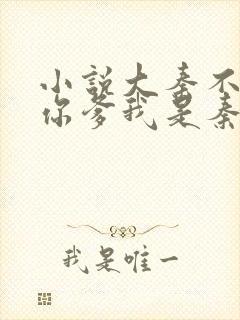 小说大秦不
你爹我是秦
我是唯一